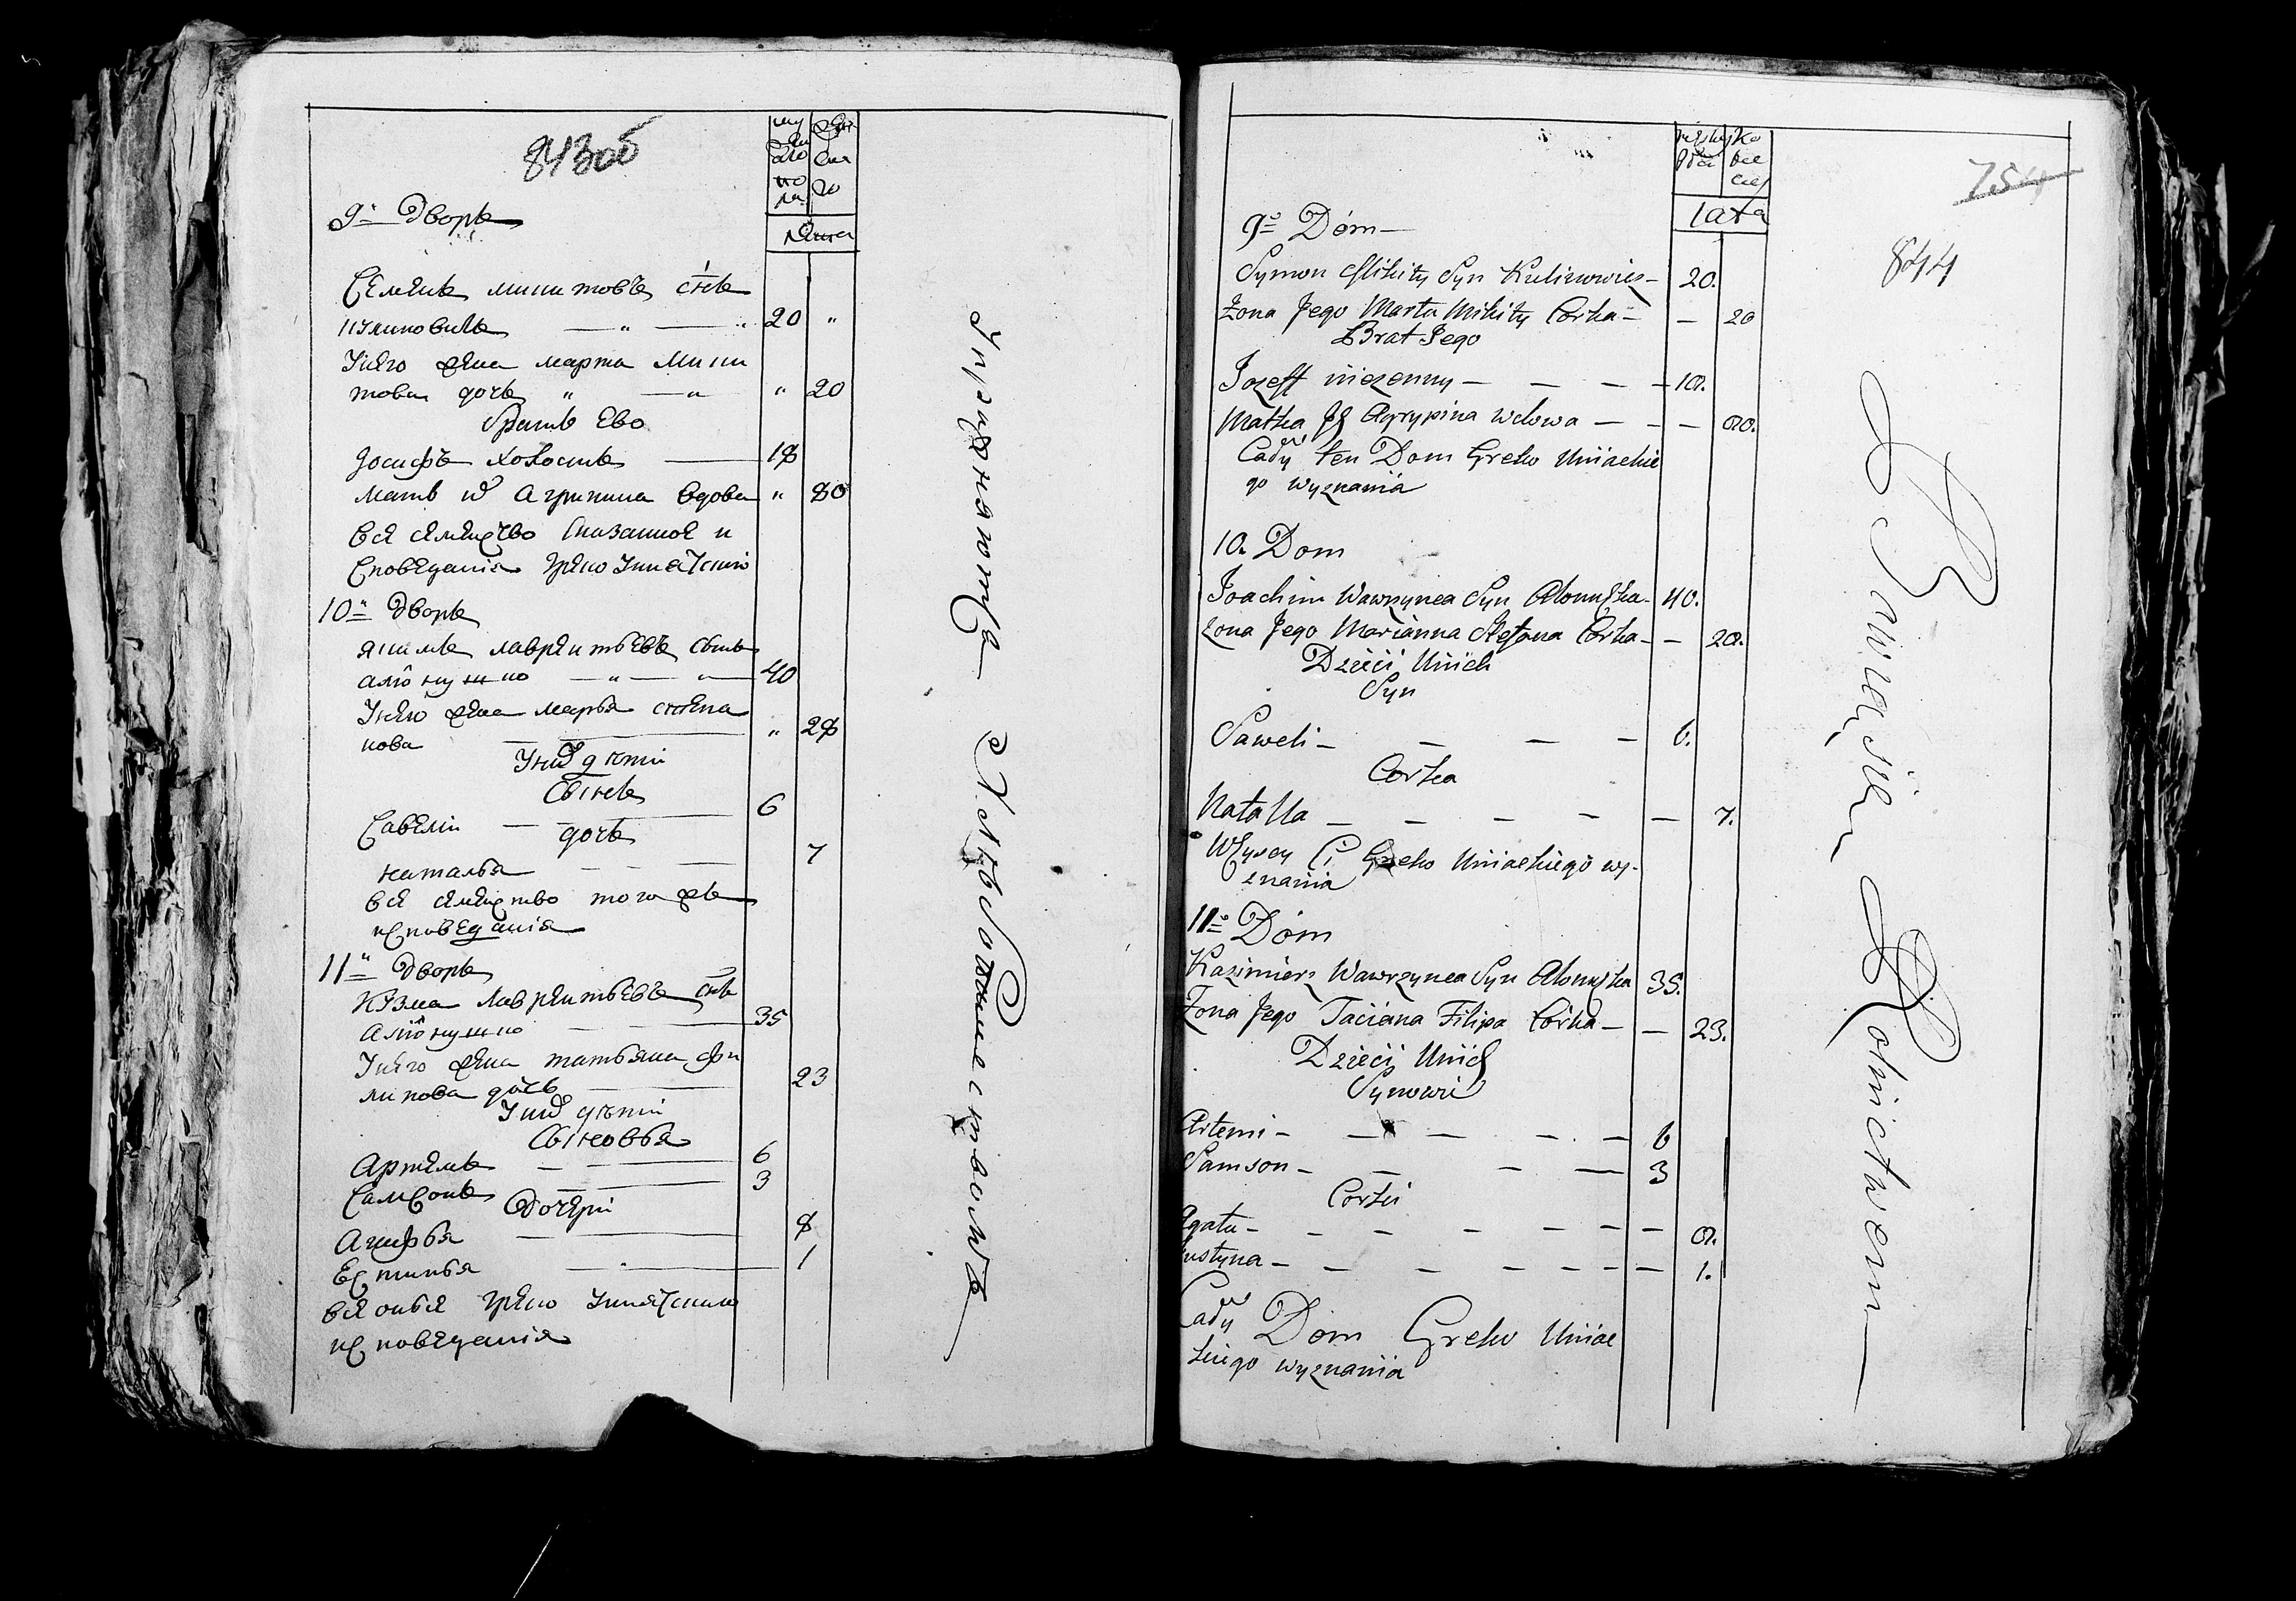 843об
му
же
ско
го
по
ла
жен
ска
го
лета
9й Дворъ
Семенъ микитовъ сынъ
кулиновичъ — " — " 20 "
У него жена марта мики
това дочь " — " " 20
братъ Ево
Іосифъ холостъ — 18
мать их Агрипина вдова " 80
всё семейство сказанное и
споведанія греко Униатского
10й Дворъ
якимъ лаврентьевъ сынъ
40
У него жена марья степа
нова — " 28
У них дети
Сынъ
Савели — 6
дочь
наталья — 7
всё семейство того жъ
исповеданія
11й Дворъ
Кузма лаврентьевъ снъ
35
У него жена татьяна фи
липова дочь — 23
У них дети
Сыновья
Артемъ — 6
Самсонъ — 3
Дочери
Агафья — 8
Естинья — 1
всё оныя греко Униатского
исповеданія
Упражняютца Хлебопашеством
754
844
męs
kie
lata
9o Dóm —
Symon Mikity Syn Kulinowicz — 20.
Żona Jego Marta Mikity Corka — — 20
Brat Jego
Jozeff nieżenny — — — — 18.
Matka Jch Agrypina wdowa — — — 80.
Cały ten Dom Greko Uniackie
go wyznania
10. Dom
Joachim Wawrzynca Syn 40.
Żona Jego Marianna Stefana Corka — — 28.
Dzieci Unich
Syn
Saweli — — — — 6.
Corka
Natalla — — — — — — 7.
Wszyscy Ci Greko Uniackiego wy-
znania
11o Dóm
Kazimierz Wawrzynca Syn 35.
Żona Jego Taciana Filipa Corka — — 23.
Dzieci Unich
Synowie
Artemi — — — — — 6
Samson — — — — 3
Corki
Agata — — — — — — — 8.
Justyna — — — — — — — 1.
Cały Dom Greko Uniac
kiego wyznania
Bawią się Rolnictwem